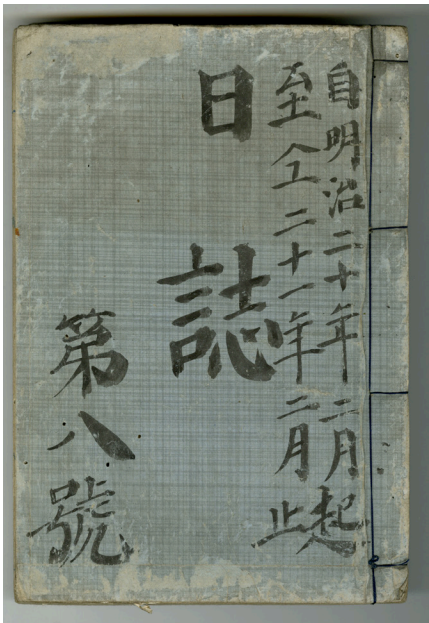 自明治二十年二月起
至仝二十一年二月止
日誌
第八號